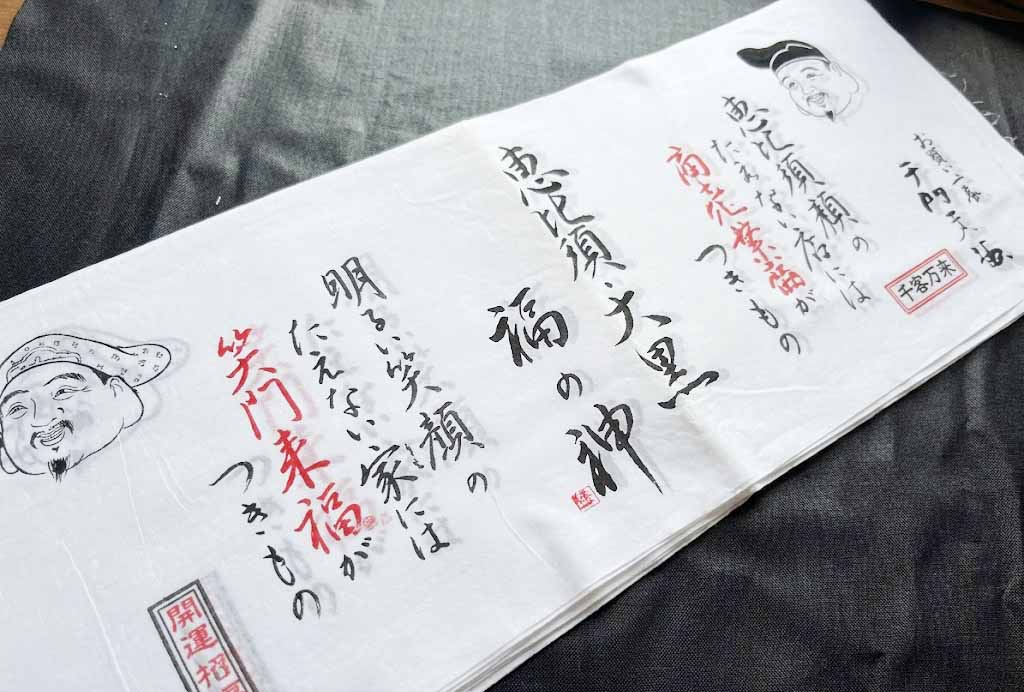 恵比須顔の
たえない店には
商売繁昌が
つきもの
千客万来
恵比須・大黒
福の神
明るい笑顔の
たえない家には
笑門来福が
つきもの
開運招